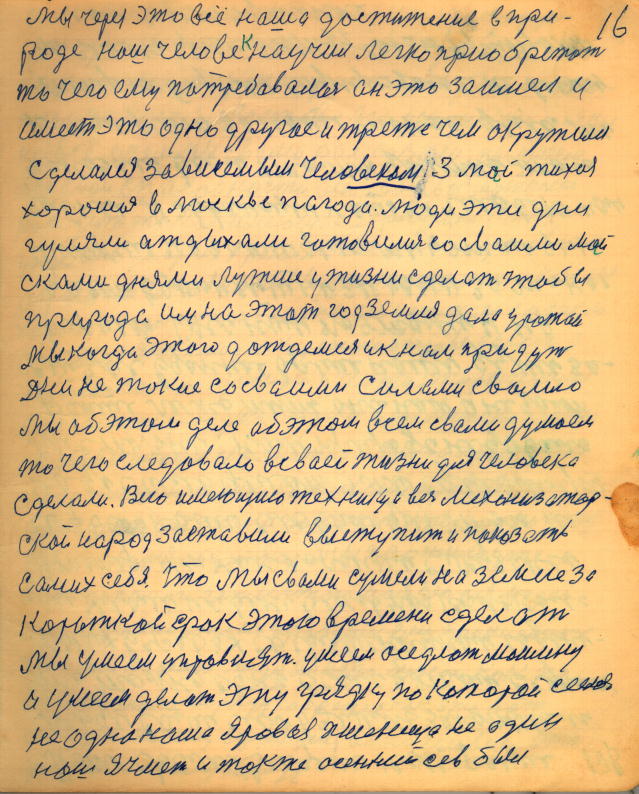 16
мы через это всё наша достижение в при-
роде наш человек научил легко приобретат
то чего ему потребавалося он это заимел и
имеет это одно другое и трете чем окружил и
сделался зависемым человеком. 3 мая тихая
хорошая в Москве пагода. Люди эти дни
гуляли атдыхали готовился со сваими май
сками днями лутше у жизни сделат чтобы
природа им на этот год земля дала урожай
мы когда этого дождемся и к нам придут
дни не такие со сваими силами с
мы об этом деле об этом всем с вами думаем
то чего следовало в сваей жизни для человека
сделали. Всю имеющию технику и вся механизатар-
ской народ заставили выступит и показать
самих себя. Что мы с вами сумели на земле за
кораткой срок этого времени сделат
мы умеем управлят. умеем оседлат машину
и умеем делат эту грядку по которой
не одна наша яровая пшеница не один
наш ячмен и также осенний сев был